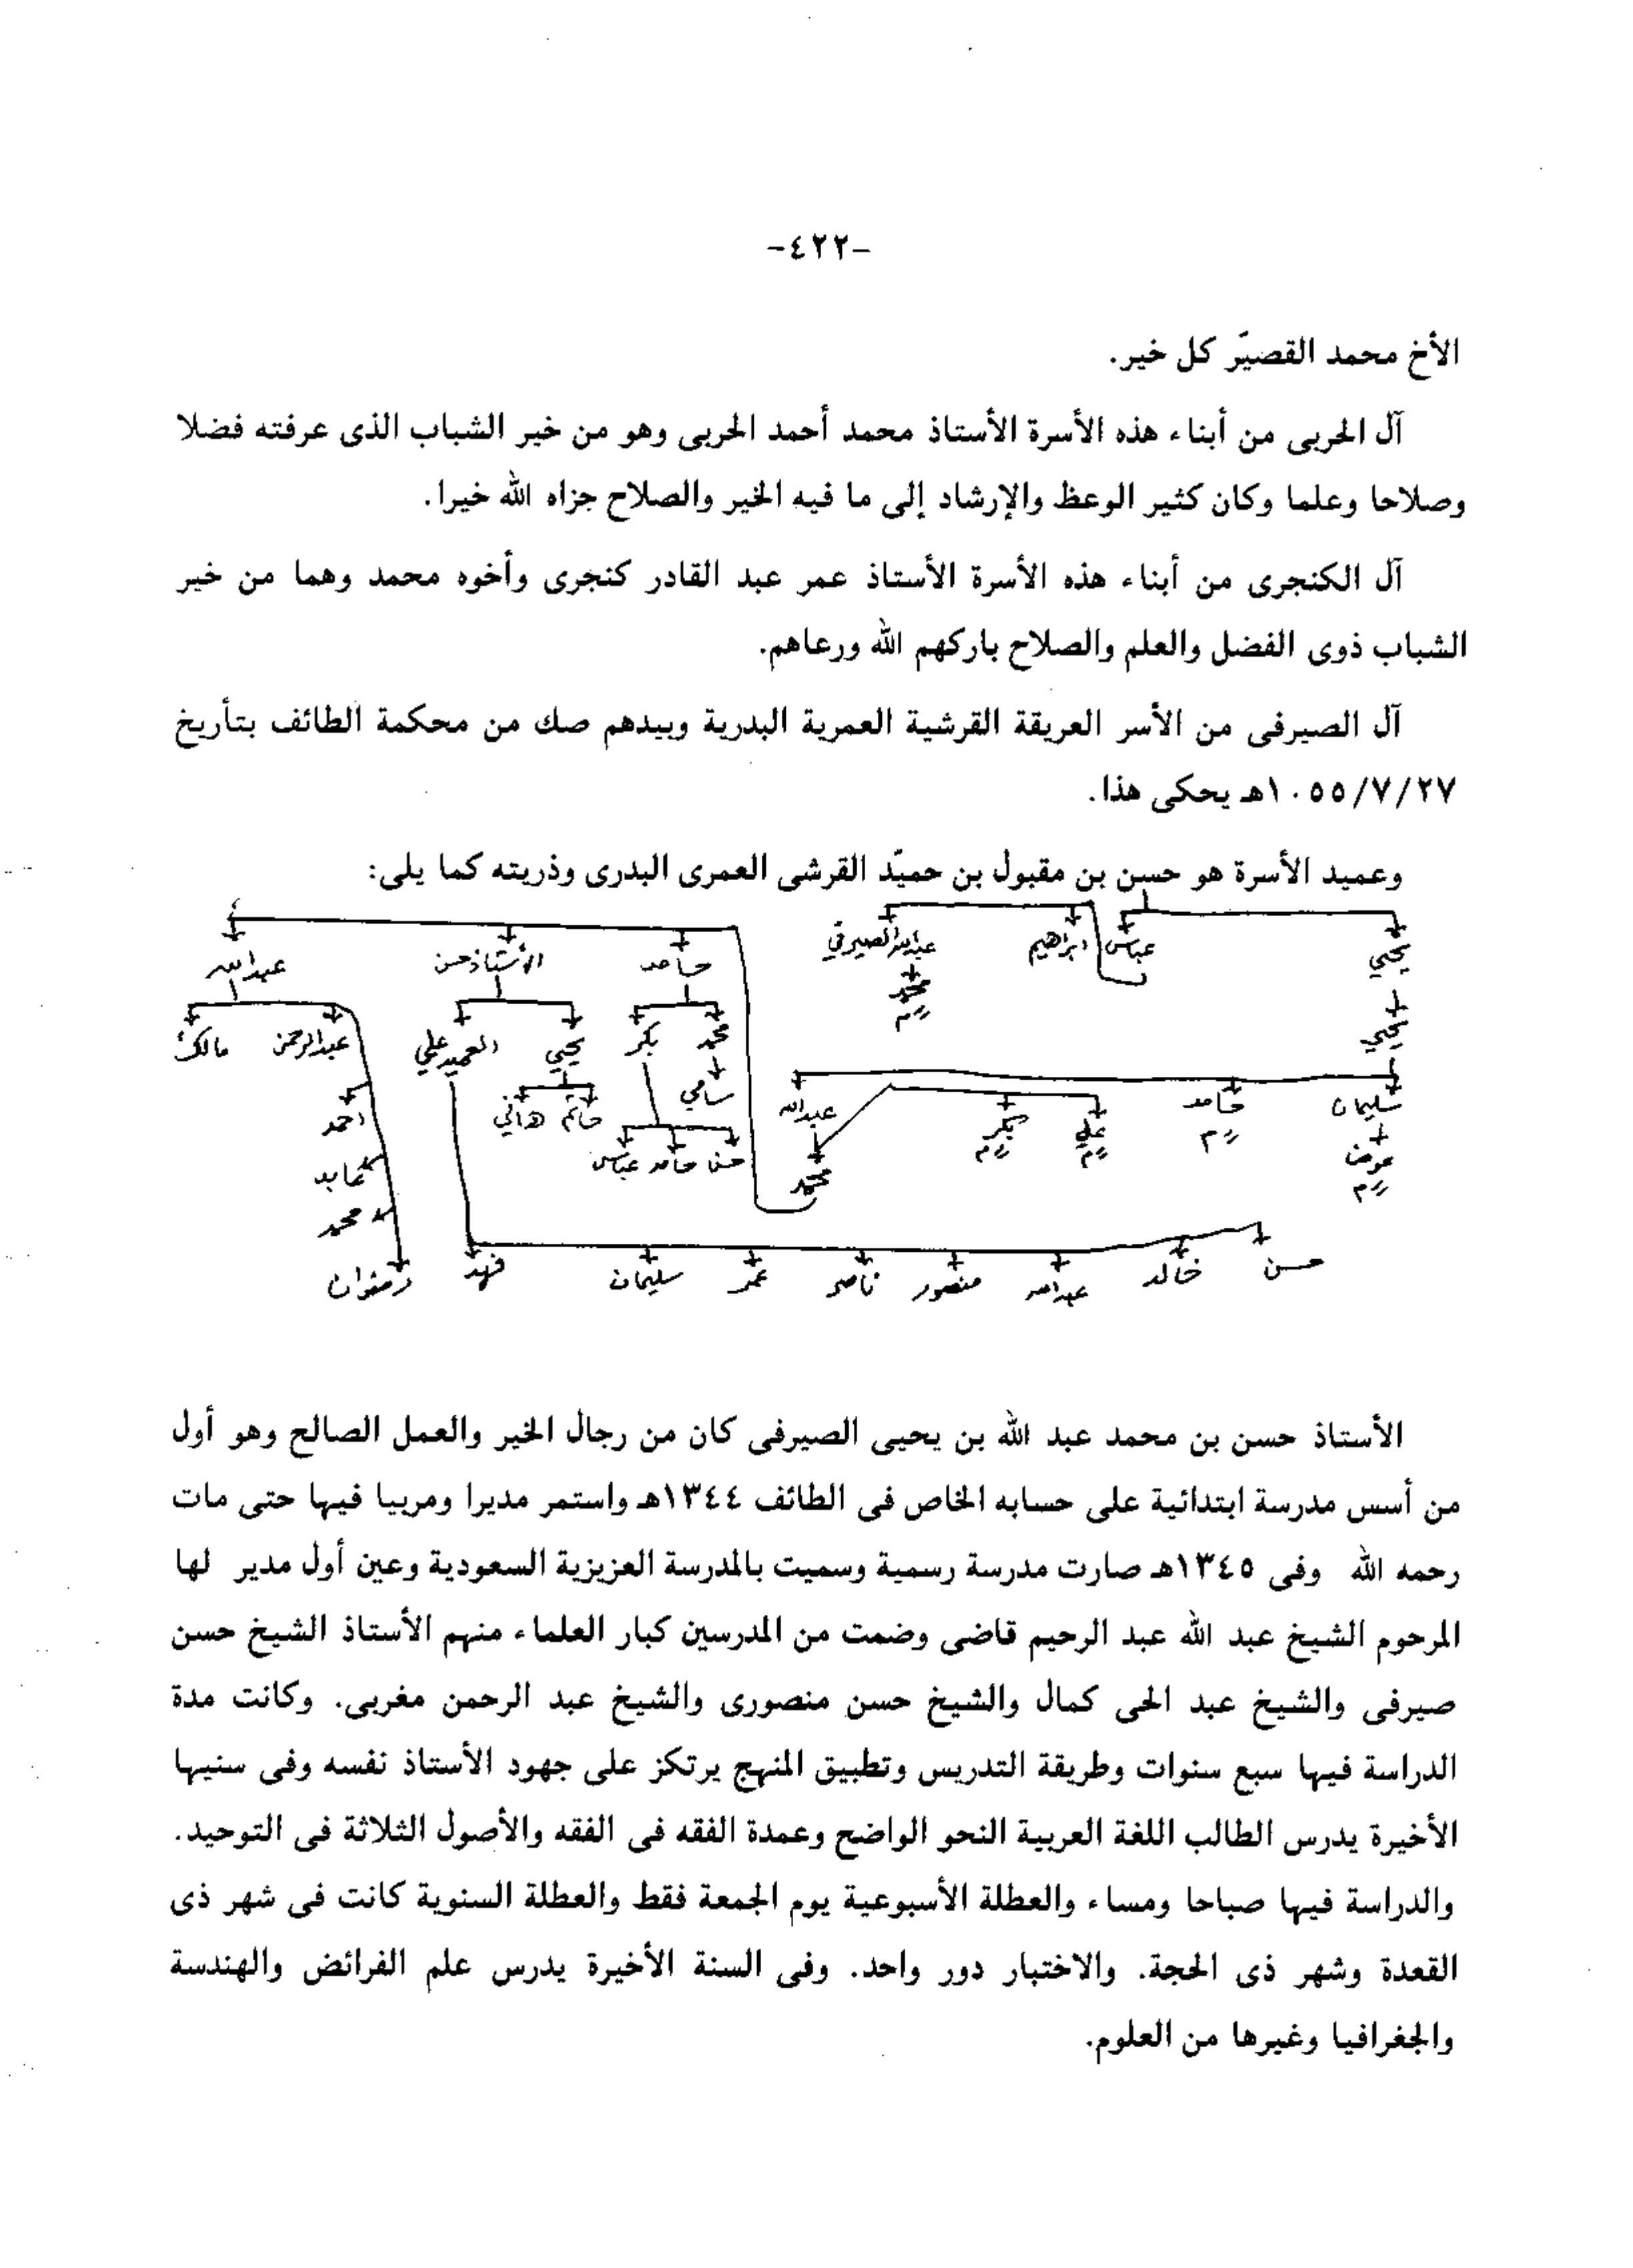 -٤٢٢-
الأخ محمد القصيّر كل خير.
آل الحربى من أبناء هذه الأسرة الأستاذ محمد أحمد الحربى وهو من خير الشباب الذى عرفته فضلا
وصلاحا وعلما وكان كثير الوعظ والإرشاد إلى ما فيه الخير والصلاح جزاه الله خيرا.
آل الكنجرى من أبناء هذه الأسرة الأستاذ عمر عبد القادر كنجرى وأخوه محمد وهما من خير
الشباب ذوى الفضل والعلم والصلاح باركهم الله ورعاهم.
آل الصيرفى من الأسر العريقة القرشية العمرية البدرية وبيدهم صك من محكمة الطائف بتأريخ
١٠٥٥/٧/٢٧هـ يحكى هذا.
وعميد الأسرة هو حسن بن مقبول بن حميّد القرشى العمرى البدرى وذريته كما يلى:
يحيي عباس ابراهيم عبدالله الصيرفي حامد الأستاذ حسن عبدالله
محمد
يحيي محمد بكر يحيي العميد علي عبدالرحمن مالك
سليمان حامد علي بكر عبدالله سامي حاتم هاني احمد
عوض محمد حسن حامد عباس عابد
محمد
حسن خالد عبدالله منصور ناصر عمر سليمان فهد رضوان
الأستاذ حسن بن محمد عبد الله بن يحيى الصيرفى كان من رجال الخير والعمل الصالح وهو أول
من أسس مدرسة ابتدائية على حسابه الخاص فى الطائف ١٣٤٤هـ واستمر مديرا ومربيا فيها حتى مات
رحمه الله وفى ١٣٤٥هـ صارت مدرسة رسمية وسميت بالمدرسة العزيزية السعودية وعين أول مدير لها
المرحوم الشيخ عبد الله عبد الرحيم قاضى وضمت من المدرسين كبار العلماء منهم الأستاذ الشيخ حسن
صيرفى والشيخ عبد الحى كمال والشيخ حسن منصورى والشيخ عبد الرحمن مغربى. وكانت مدة
الدراسة فيها سبع سنوات وطريقة التدريس وتطبيق المنهج يرتكز على جهود الأستاذ نفسه وفى سنيها
الأخيرة يدرس الطالب اللغة العربية النحو الواضح وعمدة الفقه فى الفقه والأصول الثلاثة فى التوحيد.
والدراسة فيها صباحا ومساء والعطلة الأسبوعية يوم الجمعة فقط والعطلة السنوية كانت فى شهر ذى
القعدة وشهر ذى الحجة. والاختبار دور واحد. وفى السنة الأخيرة يدرس علم الفرائض والهندسة
والجغرافيا وغيرها من العلوم.